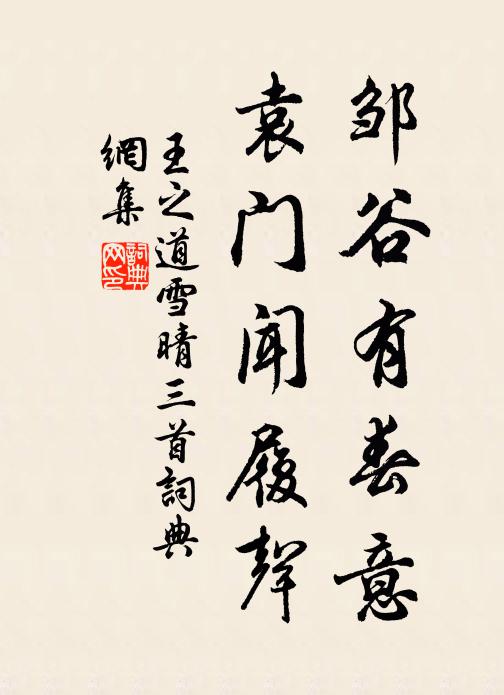 邹谷有春意
袁门闻履聲
王之道雪晴三首詞典
網集
詞典
网印